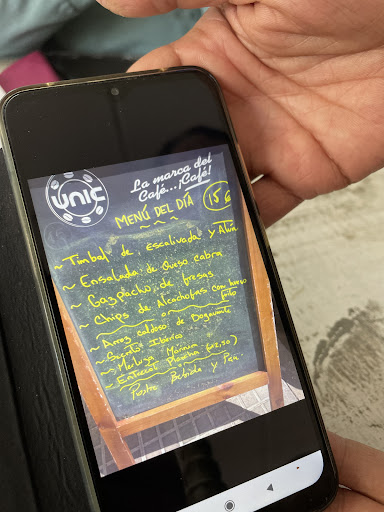 UNIC
La marca del
Café...¡Café!
MENÚ DEL DÍA 15€
~ Timbal de escalivada y Atún
~ Ensalada de Queso cabra
~ Gazpacho de fresas
~ Chips de Alcachofas con huevo frito
~ Arroz caldoso de Bogavante
~ Ibérico
~ Merluza
~ Entrecot Plancha (+2,50)
Postre Bebida y Pan